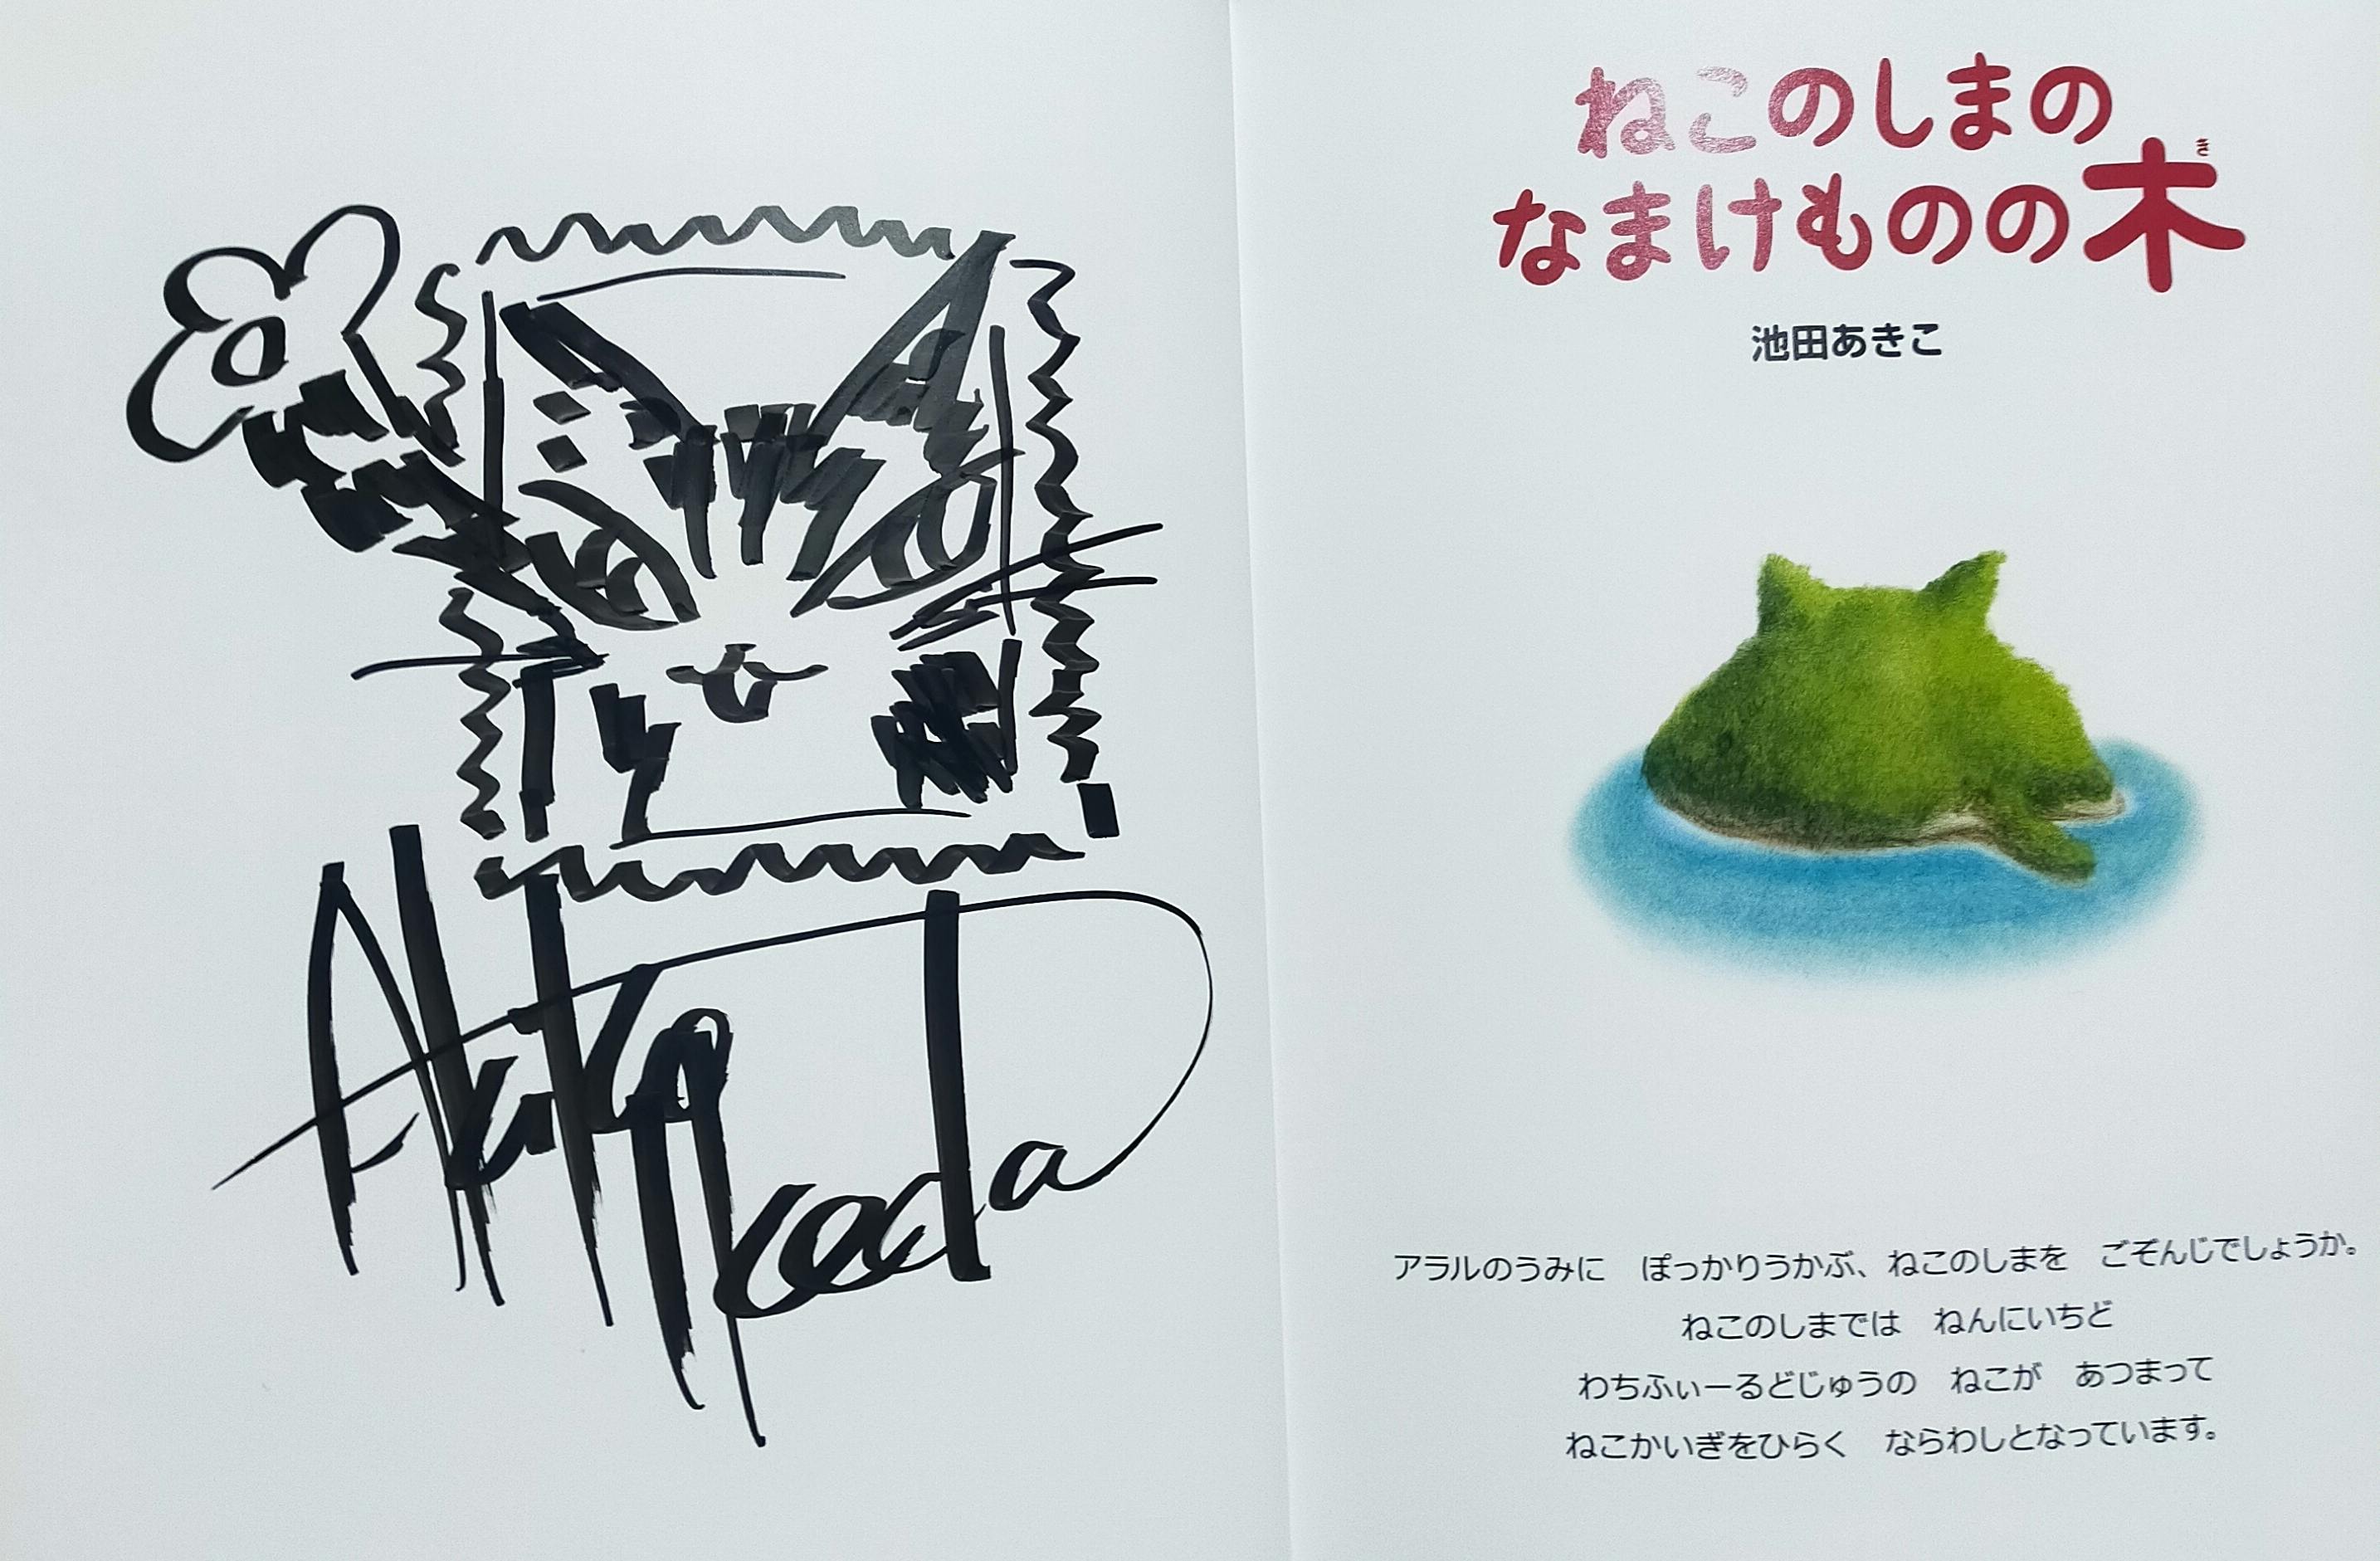 Akiko Ikeda
ねこのしまの
なまけものの木
き
池田あきこ
アラルのうみに　ぽっかりうかぶ、ねこのしまを　ごぞんじでしょうか。
ねこのしまでは　ねんにいちど
わちふぃーるどじゅうの　ねこが　あつまって
ねこかいぎをひらく　ならわしとなっています。